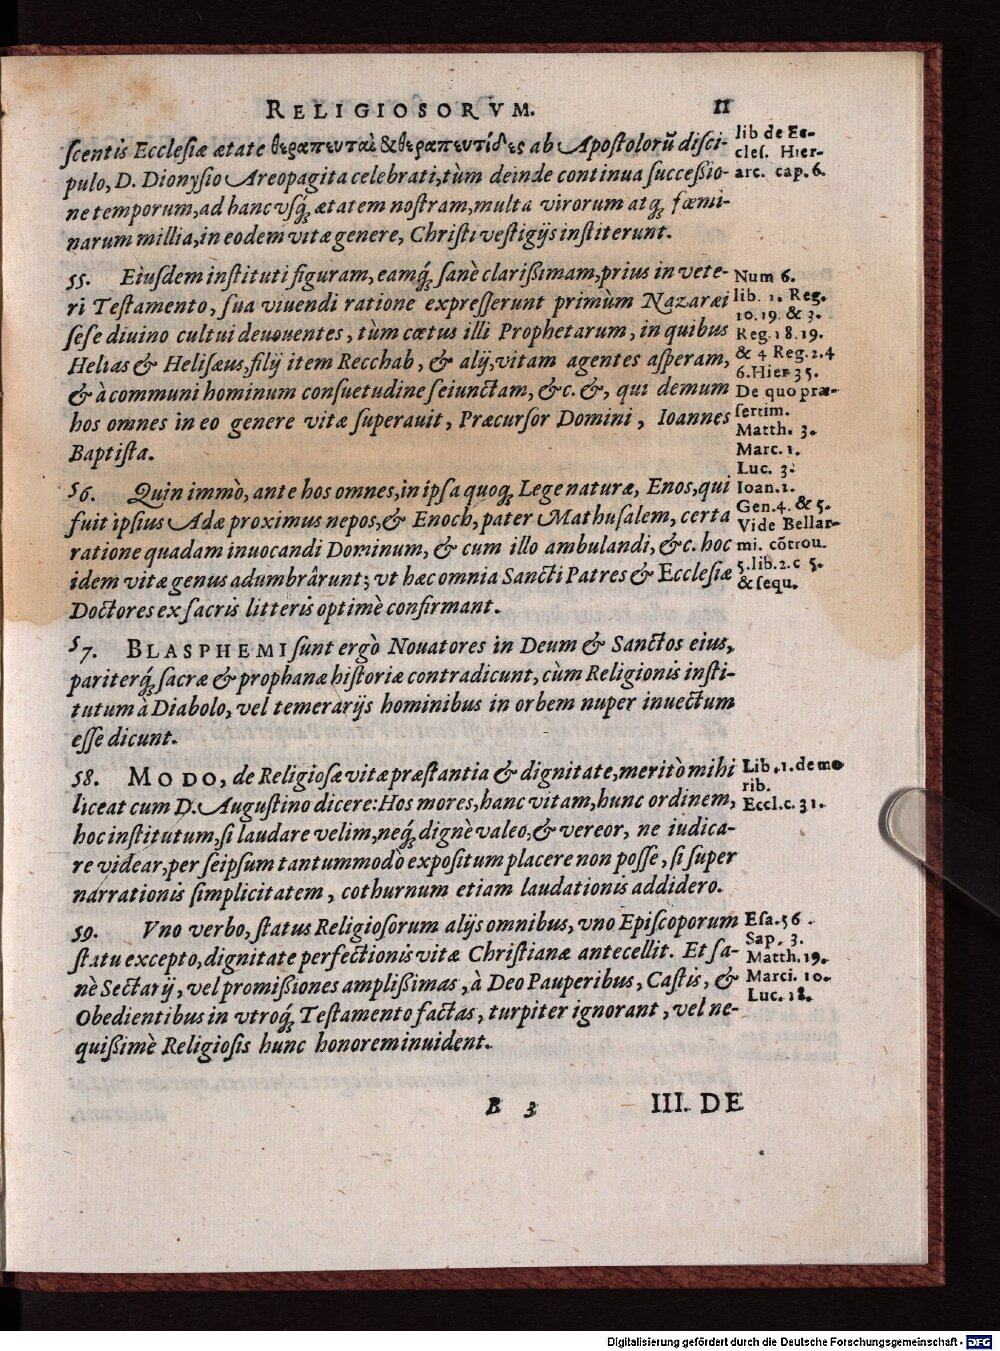 RELIGIOSORVM. 11
scentis Ecclesiæ ætate θεραπευταὶ & θεραπευτίδες ab Apostolorũ disci-
pulo, D. Dionysio Areopagita celebrati, tùm deinde continua successio-
ne temporum, ad hanc vsq́; ætatem nostram, multa virorum atq́; fœmi-
narum millia, in eodem vitæ genere, Christi vestigijs institerunt.
lib de Ec-
cles. Hier-
arc. cap. 6.
55. Eiusdem instituti figuram, eamq́; sanè clarißimam, prius in vete-
ri Testamento, sua viuendi ratione expresserunt primùm Nazaræi
sese diuino cultui deuouentes, tùm cœtus illi Prophetarum, in quibus
Helias & Helisæus, filij item Recchab, & alij, vitam agentes asperam,
& à communi hominum consuetudine seiunctam, &c. &, qui demum
hos omnes in eo genere vitæ superauit, Præcursor Domini, Ioannes
Baptista.
Num 6.
lib. 1. Reg.
10.19. & 3.
Reg. 18.19.
& 4 Reg. 2.4
6. Hier 35.
De quo præ-
sertim.
Matth. 3.
Marc. 1.
Luc. 3.
Ioan. 1.
56. Quin immò, ante hos omnes, in ipsa quoq́; Lege naturæ, Enos, qui
fuit ipsius Adæ proximus nepos, & Enoch, pater Mathusalem, certa
ratione quadam inuocandi Dominum, & cum illo ambulandi, &c. hoc
idem vitæ genus adumbrârunt; vt hæc omnia Sancti Patres & Ecclesiæ
Doctores ex sacris litteris optimè confirmant.
Gen. 4. & 5.
Vide Bellar-
mi. cõtrou.
5. lib. 2. c 5.
& sequ.
57. BLASPHEMI sunt ergò Nouatores in Deum & Sanctos eius,
pariterq́; sacræ & prophanæ historiæ contradicunt, cùm Religionis insti-
tutum à Diabolo, vel temerarijs hominibus in orbem nuper inuectum
esse dicunt.
58. MODO, de Religiosæ vitæ præstantia & dignitate, meritò mihi
liceat cum D. Augustino dicere: Hos mores, hanc vitam, hunc ordinem,
hoc institutum, si laudare velim, neq́; dignè valeo, & vereor, ne iudica-
re videar, per seipsum tantummodò expositum placere non posse, si super
narrationis simplicitatem, cothurnum etiam laudationis addidero.
Lib. 1. de mo
rib.
Eccl. c. 31.
59. Vno verbo, status Religiosorum alijs omnibus, vno Episcoporum
statu excepto, dignitate perfectionis vitæ Christianæ antecellit. Et sa-
nè Sectarij, vel promißiones amplißimas, à Deo Pauperibus, Castis, &
Obedientibus in vtroq́; Testamento factas, turpiter ignorant, vel ne-
quißimè Religiosis hunc honorem inuident.
Esa. 56.
Sap. 3.
Matth. 19.
Marci. 10.
Luc. 18.
B 3 III. DE
Digitalisierung gefördert durch die Deutsche Forschungsgemeinschaft - DFG